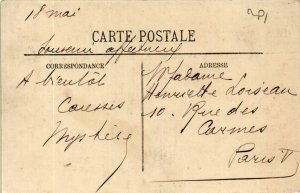 18 mai
CARTE POSTALE
Souvenir affectueux
CORRESPONDANCE
ADRESSE
A bientôt
Caresses
Mystère
Madame
Henriette Loiseau
10. Rue des
Carmes
Paris V